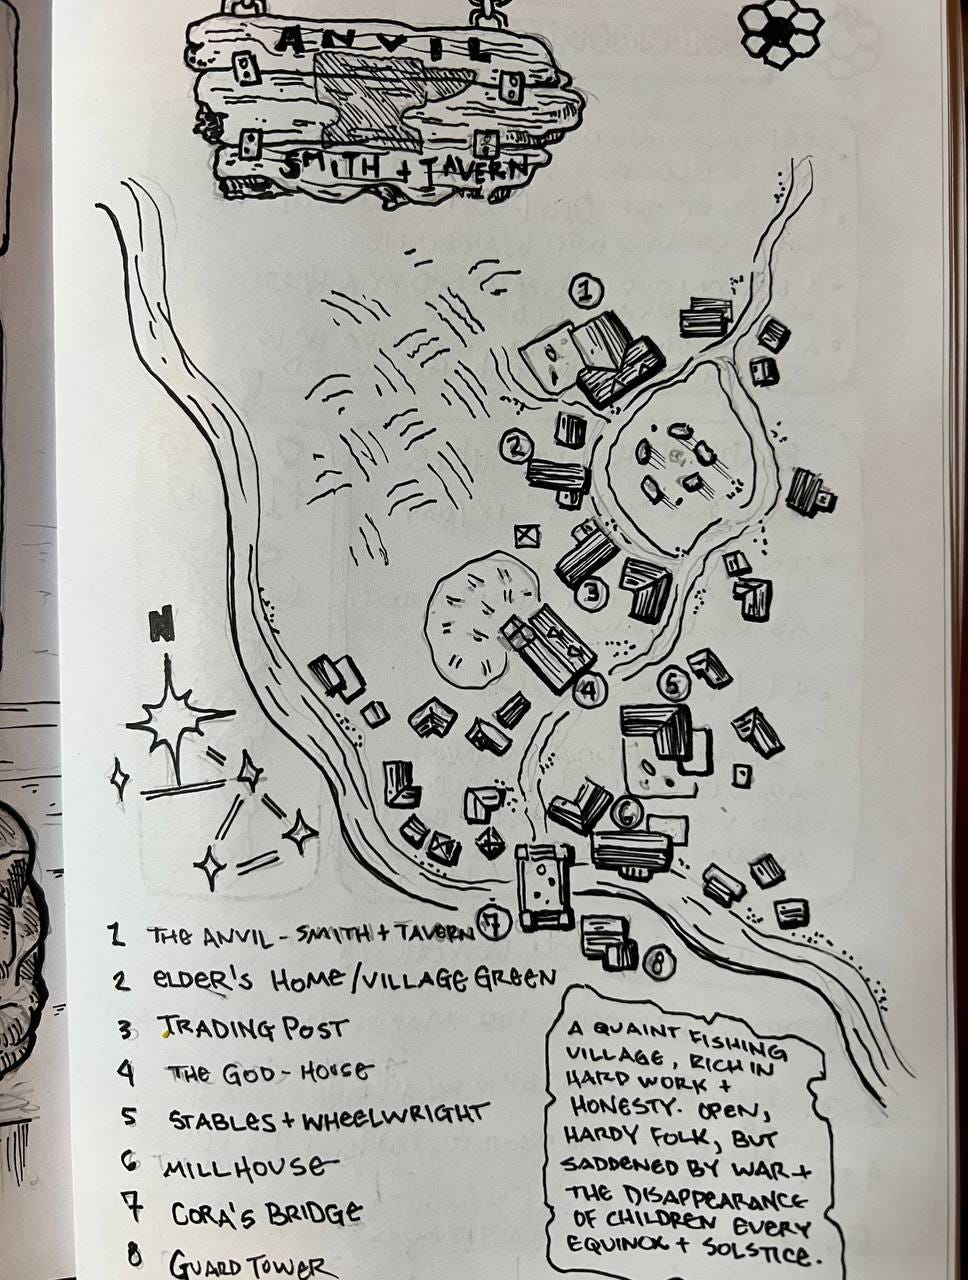 ANVIL
SMITH + TAVERN
1
2
3
N
4
5
6
7
8
1 THE ANVIL - SMITH + TAVERN
2 ELDER'S HOME/VILLAGE GREEN
3 TRADING POST
4 THE GOD-HOUSE
5 STABLES + WHEELWRIGHT
6 MILLHOUSE
7 CORA'S BRIDGE
8 GUARD TOWER
A QUAINT FISHING
VILLAGE, RICH IN
HARD WORK +
HONESTY. OPEN,
HARDY FOLK, BUT
SADDENED BY WAR +
THE DISAPPEARANCE
OF CHILDREN EVERY
EQUINOX + SOLSTICE.